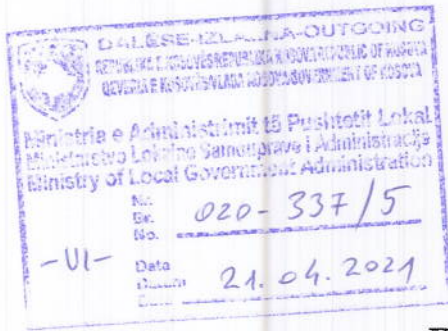 DALËSE-IZLAZNA-OUTGOING
REPUBLIKA E KOSOVËS REPUBLIKA KOSOVA REPUBLIC OF KOSOVA
QEVERIA E KOSOVËS VLADA KOSOVA GOVERNMENT OF KOSOVA
Ministria e Administrimit të Pushtetit Lokal
Ministarstvo Lokalne Samouprave i Administracije
Ministry of Local Government Administration
Nr.
Br. 020-337/5
No.
-VI-
Data
Datum 21.04.2021